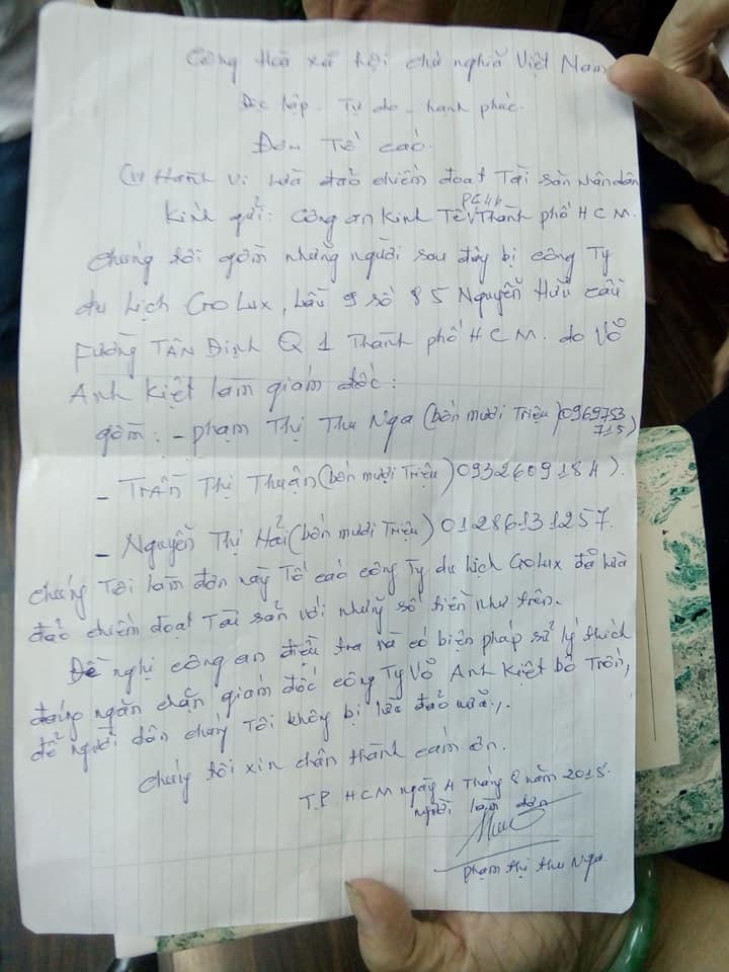 Cộng Hoà xã hội chủ nghĩa Việt Nam
Độc lập - Tự do - hạnh phúc.
Đơn Tố cáo.
(V/v Hành vi lừa đảo chiếm đoạt Tài sản nhân dân
PC46
Kính gửi: Công an Kinh Tế Thành phố HCM.
chúng tôi gồm những người sau đây bị công Ty
du lịch GoLux, lầu 9 số 85 Nguyễn Hữu cầu
Fường TÂN Định Q 1 Thành phố HCM. do Võ
Anh Kiệt làm giám đốc:
gồm: - phạm Thị Thu Nga (bốn mươi Triệu) 0969753
715)
- TRẦN Thị Thuận (bốn mươi Triệu) 0932609184).
- Nguyễn Thị Hải (bốn mươi Triệu) 01286131257.
chúng Tôi làm đơn này Tố cáo công Ty du lịch GoLux đã lừa
đảo chiếm đoạt Tài sản với những số tiền như trên.
Đề nghị công an điều tra và có biện pháp sử lý thích
đáng ngăn chặn giám đốc công Ty Võ Anh Kiệt bỏ Trốn,
để người dân chúng Tôi không bị lừa đảo nữa.
chúng tôi xin chân thành cám ơn.
T.P HCM ngày 4 Tháng 8 năm 2018.
người làm đơn
phạm thị thu Nga